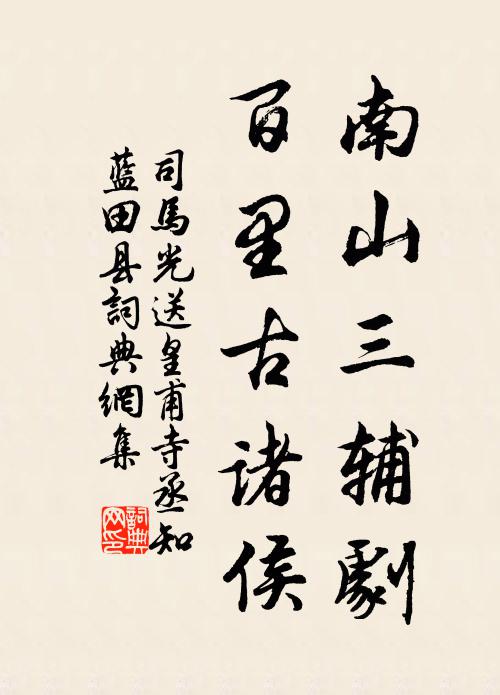 南山三辅劇
百里古诸侯
司馬光送皇甫寺丞知
藍田县詞典網集
詞典网印